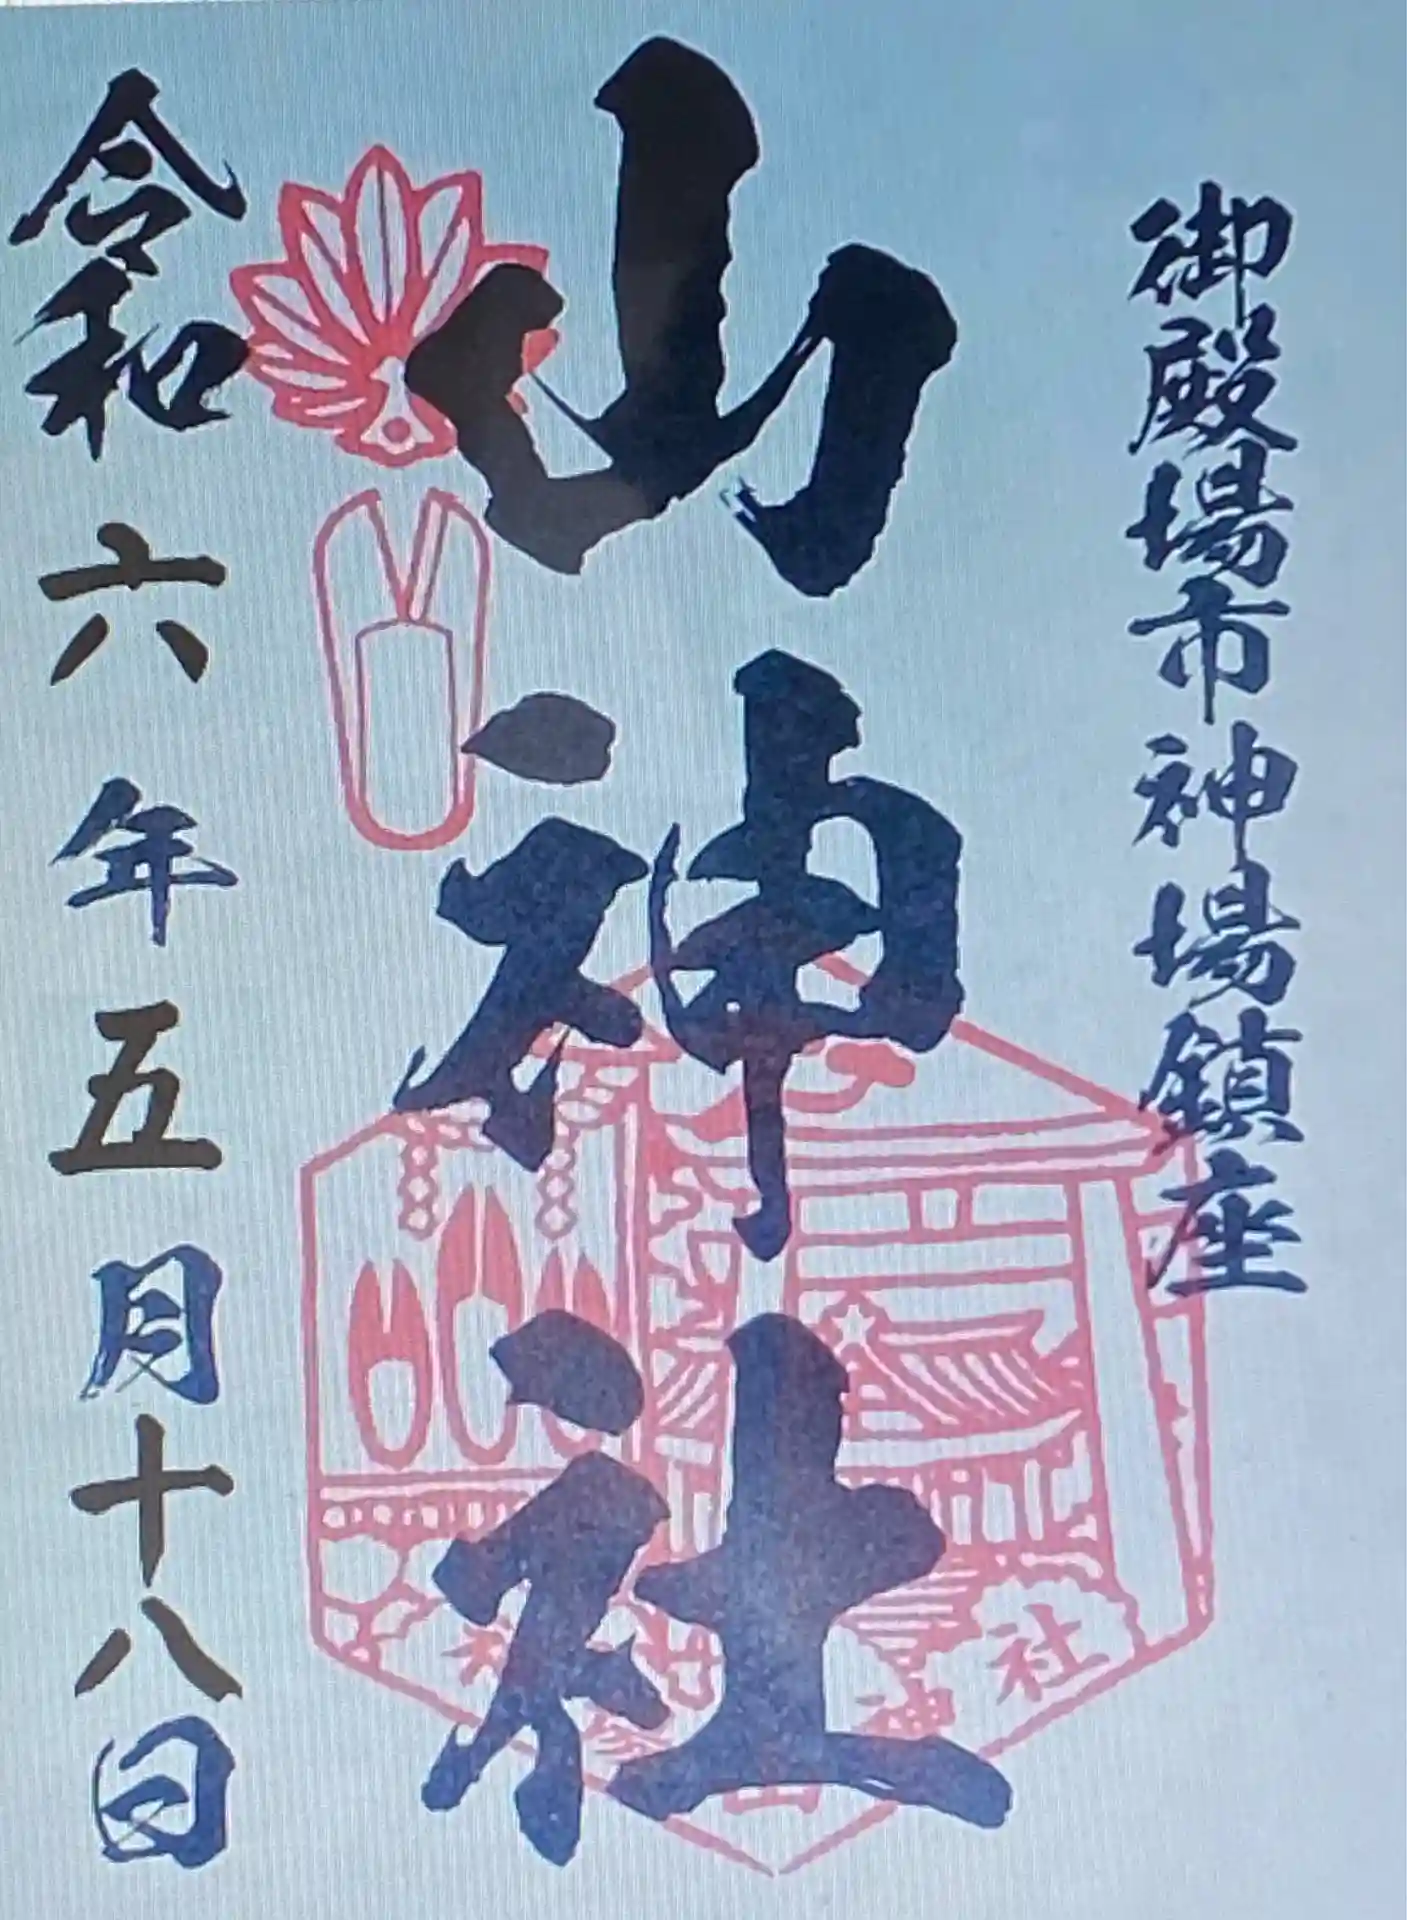 御殿場市神場鎮座
山神社
令和六年五月十八日
山神社